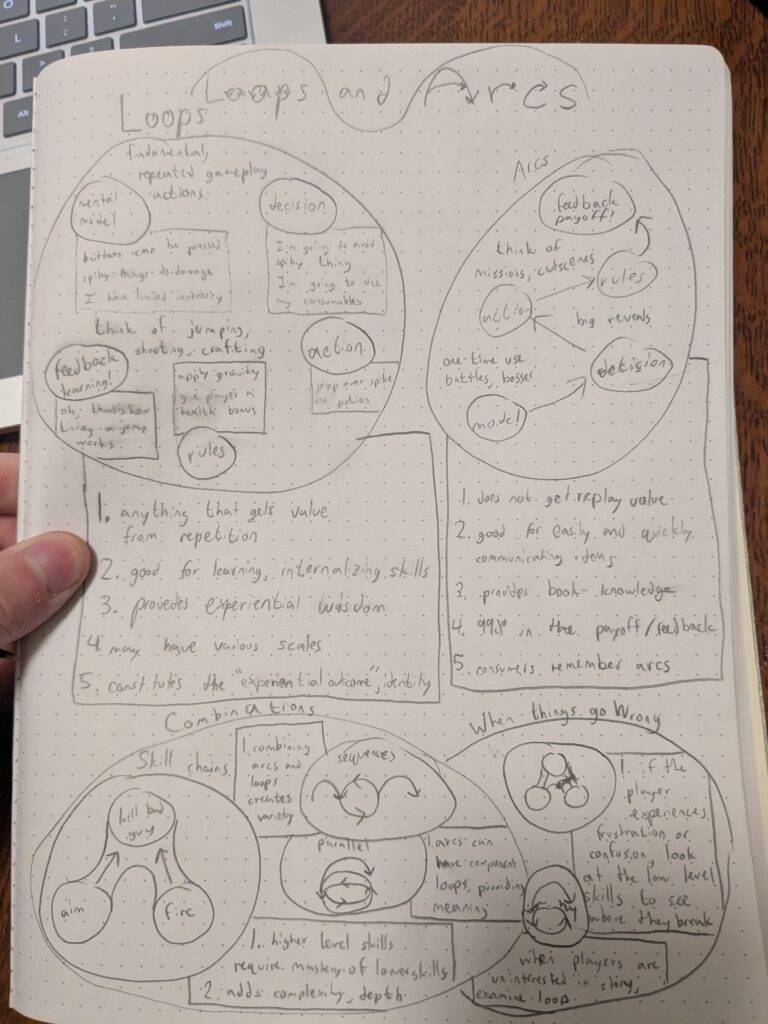 Shift
Alt
Loops and Arcs
Loops
fundamental,
repeated gameplay
actions.
mental
model
decision
buttons can be pressed
spiky things do damage
I have limited inventory
I'm going to avoid
spiky thing
I'm going to use
my consumables
think of jumping,
shooting, crafting
feedback
learning!
action
oh, that's how
a jump
works.
apply gravity
give player a
health bonus
jump over spike
use potion
rules
1. anything that gets value
from repetition
2. good for learning, internalizing skills
3. provides experiential wisdom
4. may have various scales
5. constitutes the "experiential outcome", identity
Arcs
feedback
payoff!
think of
missions, cutscenes
rules
action
big reveals
one-time use
battles, bosses
decision
model
1. does not get replay value
2. good for easily and quickly
communicating ideas
3. provides book-knowledge
4. 99% in the payoff/feedback
5. consumers remember arcs
Combinations
Skill chains
kill bad
guy
aim
fire
1. combining
arcs and
loops
creates
variety
sequences
parallel
1. arcs can
have component
loops, providing
meaning
1. higher level skills
require mastery of lower skills
2. adds complexity, depth
When things go Wrong
1. if the
player
experiences
frustration or
confusion, look
at the low level
skills to see
where they break
when players are
uninterested in story,
examine loop